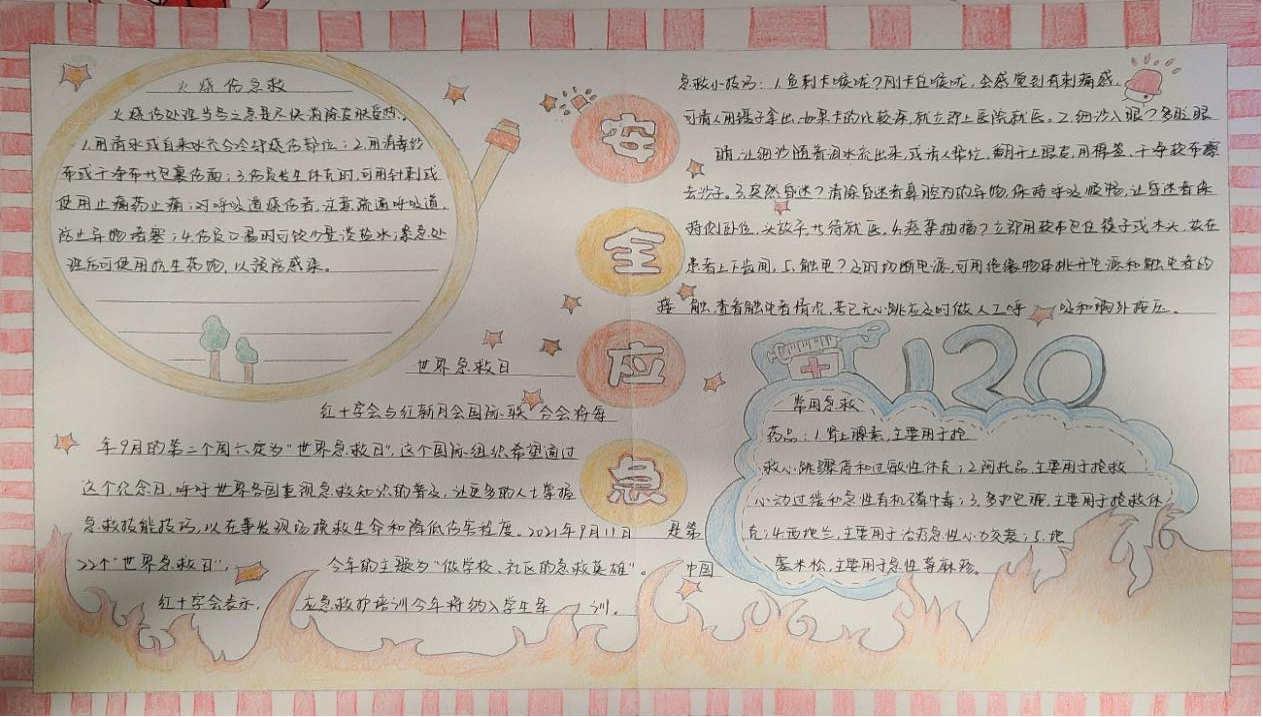 火烧伤急救
火烧伤处理当务之急是尽快消除皮肤受热。
1.用清水或自来水充分冷却烧伤部位；2.用消毒纱
布或干净布共包裹伤面；3.伤员发生休克时，可用针刺或
使用止痛药止痛；对呼吸道烧伤者，注意疏通呼吸道，
防止异物堵塞；4.伤员口渴时可饮少量淡盐水；紧急处
理后可使用抗生药物，以预防感染。
安
全
应
急
急救小技巧：1.鱼刺卡喉咙？刚卡住喉咙，会感觉到有刺痛感，
可请人用镊子拿出，如果卡的比较深，就立即上医院就医。2.细沙入眼？多眨眼
睛，让细沙随着泪水流出来，或请人帮忙，翻开上眼皮，用棉签、干净软布擦
去沙子。3.突然昏迷？清除昏迷者鼻腔内的异物，保持呼吸顺畅，让昏迷者保
持侧卧位，头放平，共待就医。4.痉挛抽搐？立即用软布包住筷子或木头，放在
患者上下齿间，5.触电？及时切断电源，可用绝缘物体挑开电源和触电者的
接触，查看触电者情况，若已无心跳应及时做人工呼吸和胸外按压。
世界急救日
红十字会与红新月会国际联合会将每
年9月的第二个周六定为“世界急救日”，这个国际组织希望通过
这个纪念日，呼吁世界各国重视急救知识的普及，让更多的人士掌握
急救技能技巧，以在事发现场挽救生命和降低伤害程度。2021年9月11日 是第
22个“世界急救日”， 今年的主题为“做学校、社区的急救英雄”。 中国
红十字会表示， 应急救护培训今年将纳入学生军 训。
120
常用急救
药品：1.肾上腺素，主要用于抢
救心跳骤停和过敏性休克；2.阿托品，主要用于抢救
心动过缓和急性有机磷中毒；3.多巴胺，主要用于抢救休
克；4.西地兰，主要用于治疗急性心力衰竭；5.地
塞米松，主要用于急性荨麻疹。